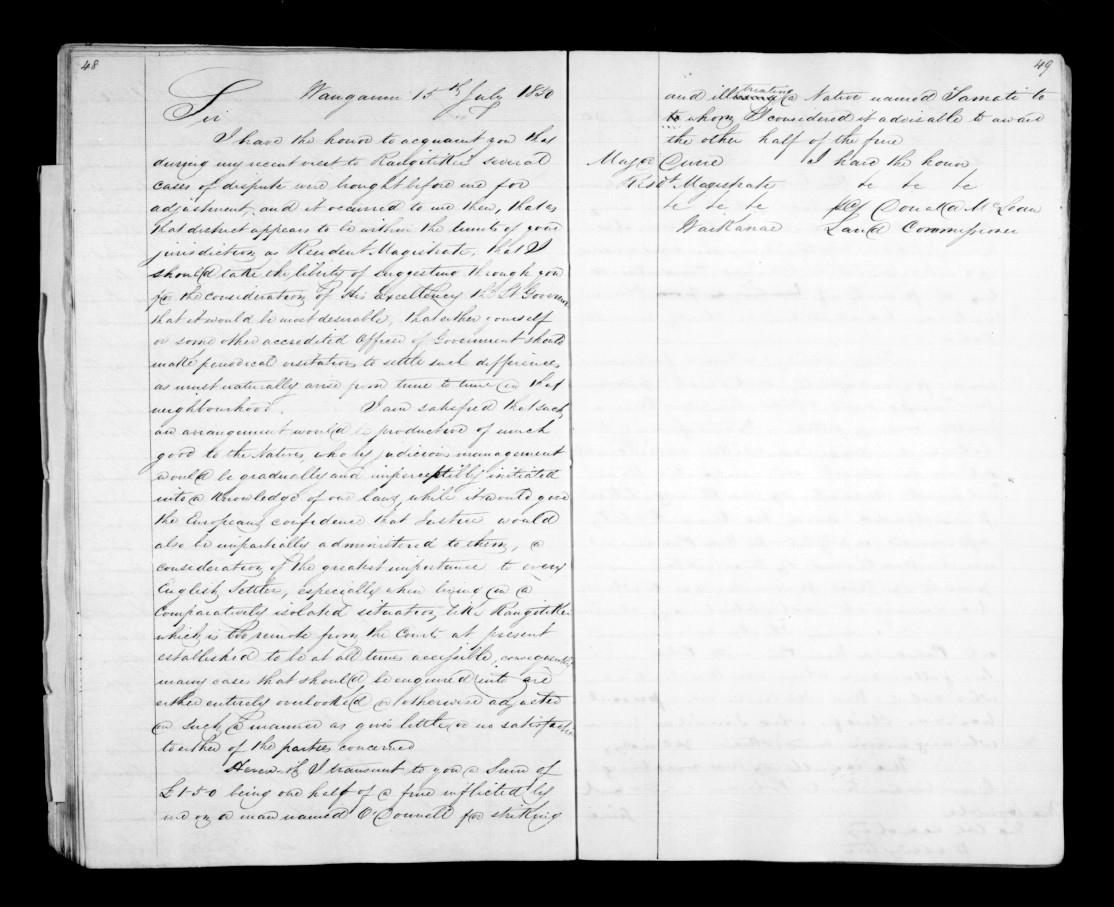 48
Wanganui 15th July 1850
Sir
I have the honor to acquaint you that
during my recent visit to Rangitikei several
cases of dispute were brought before me for
adjustment, and it occurred to me then, that as
that district appears to be within the limits of your
jurisdiction as Resident Magistrate, that I
should take the liberty of suggesting through you
for the consideration of His Excellency the Lt Governor
that it would be most desirable, that either yourself
or some other accredited Officer of Government should
make periodical visitations to settle such differences
as must naturally arise from time to time in that
neighbourhood. I am satisfied that such
an arrangement would be productive of much
good to the Natives, who by judicious management
would be gradually and imperceptibly initiated
into a knowledge of our laws, while it would give
the Europeans confidence that Justice would
also be impartially administered to them, a
consideration of the greatest importance to every
English Settler, especially when living in a
comparatively isolated situation, like Rangitikei
which is too remote from the Courts at present
established to be at all times accessible, consequently
many cases that should be enquired into are
either entirely overlooked or otherwise adjusted
in such a manner as gives little or no satisfaction
to either of the parties concerned
Herewith I transmit to you a Sum of
£1-5-0 being one half of a fine inflicted by
me on a man named O'Connell for striking
49
and ill treating a Native named Tamati to
to whom I considered it advisable to award
the other half of the fine
Major Durie I have the honor
Resdt Magistrate &c &c &c
&c &c &c Donald McLean
Waikanae Land Commissioner